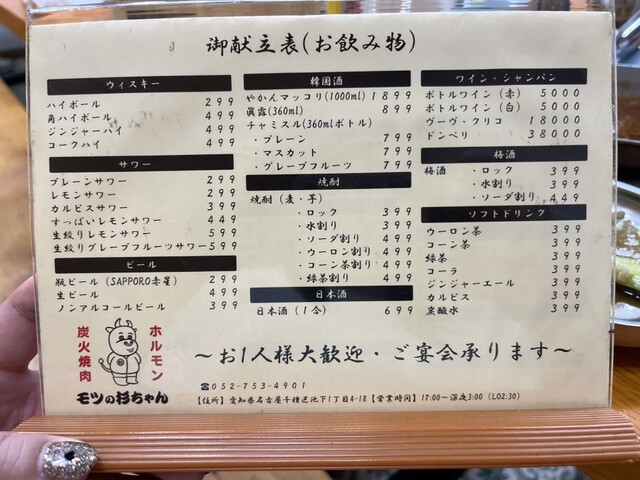 御献立表(お飲み物)
ウィスキー
ハイボール 299
角ハイボール 499
ジンジャーハイ 499
コークハイ 499
サワー
プレーンサワー 299
レモンサワー 299
カルピスサワー 399
すっぱいレモンサワー 449
生絞りレモンサワー 599
生絞りグレープフルーツサワー 599
ビール
瓶ビール (SAPPORO赤星) 299
生ビール 499
ノンアルコールビール 399
韓国酒
やかんマッコリ(1000ml) 1899
眞露(360ml) 899
チャミスル(360mlボトル)
・プレーン 799
・マスカット 799
・グレープフルーツ 799
焼酎
焼酎 (麦・芋)
・ロック 399
・水割り 399
・ソーダ割り 499
・ウーロン割り 499
・コーン茶割り 499
・緑茶割り 499
日本酒
日本酒 (1合) 699
ワイン・シャンパン
ボトルワイン (赤) 5000
ボトルワイン (白) 5000
ヴーヴ・クリコ 18000
ドンペリ 38000
梅酒
梅酒 ・ロック 399
・水割り 399
・ソーダ割り 449
ソフトドリンク
ウーロン茶 399
コーン茶 399
緑茶 399
コーラ 399
ジンジャーエール 399
カルピス 399
炭酸水 399
炭火焼肉
ホルモン
モツの杉ちゃん
～お1人様大歓迎・ご宴会承ります～
☎052-753-4901
【住所】愛知県名古屋千種区池下1丁目4-18【営業時間】17:00～深夜3:00 (LO2:30)